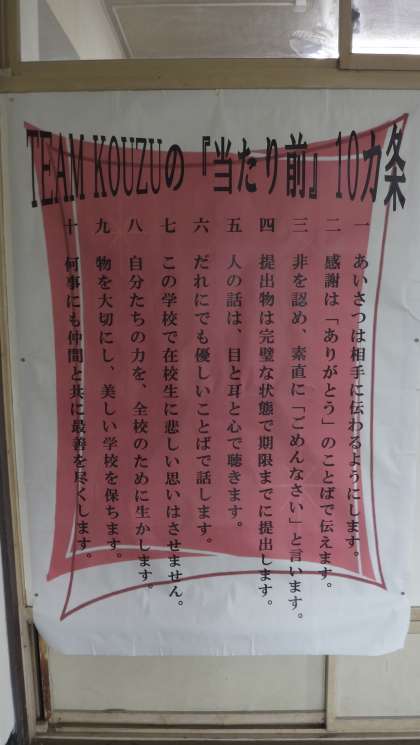 TEAM KOUZUの『当たり前』10カ条
一 あいさつは相手に伝わるようにします。
二 感謝は「ありがとう」のことばで伝えます。
三 非を認め、素直に「ごめんなさい」と言います。
四 提出物は完璧な状態で期限までに提出します。
五 人の話は、目と耳と心で聴きます。
六 だれにでも優しいことばで話します。
七 この学校で在校生に悲しい思いはさせません。
八 自分たちの力を、全校のために生かします。
九 物を大切にし、美しい学校を保ちます。
十 何事にも仲間と共に最善を尽くします。